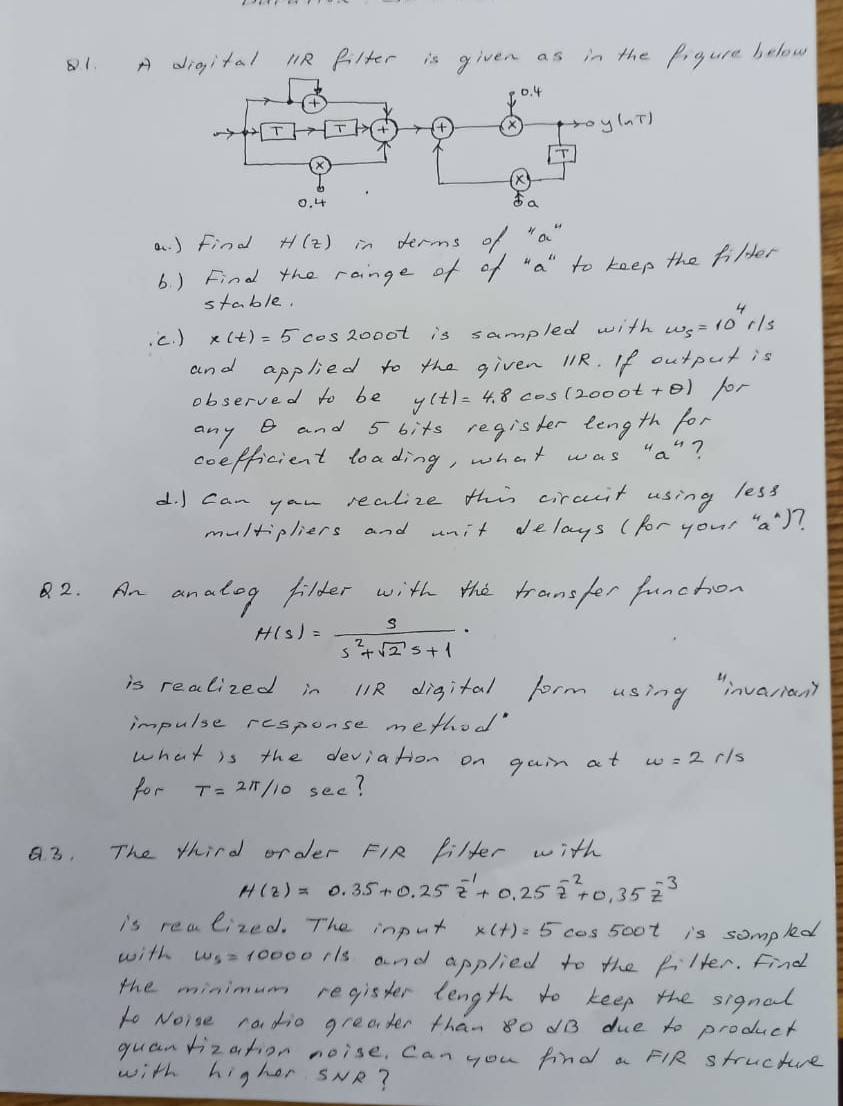 Q1. A digital IIR filter is given as in the figure below
0.4
+
T T + + x y(nT)
T
x x
0.4 a
a.) Find H(z) in terms of "a"
b.) Find the range of of "a" to keep the filter
stable.
c.) x(t) = 5 cos 2000t is sampled with ws = 10⁴ r/s
and applied to the given IIR. If output is
observed to be y(t) = 4.8 cos (2000t + θ) for
any θ and 5 bits register length for
coefficient loading, what was "a"?
d.) Can you realize this circuit using less
multipliers and unit delays (for your "a")?
Q2. An analog filter with the transfer function
H(s) = s / (s² + √2 s + 1) .
is realized in IIR digital form using "invariant
impulse response method"
what is the deviation on gain at w = 2 r/s
for T = 2π/10 sec?
Q.3. The third order FIR filter with
H(z) = 0.35 + 0.25 z⁻¹ + 0,25 z⁻² + 0,35 z⁻³
is realized. The input x(t) = 5 cos 500t is sampled
with ws = 10000 r/s and applied to the filter. Find
the minimum register length to keep the signal
to Noise ratio greater than 80 dB due to product
quantization noise. Can you find a FIR structure
with higher SNR?